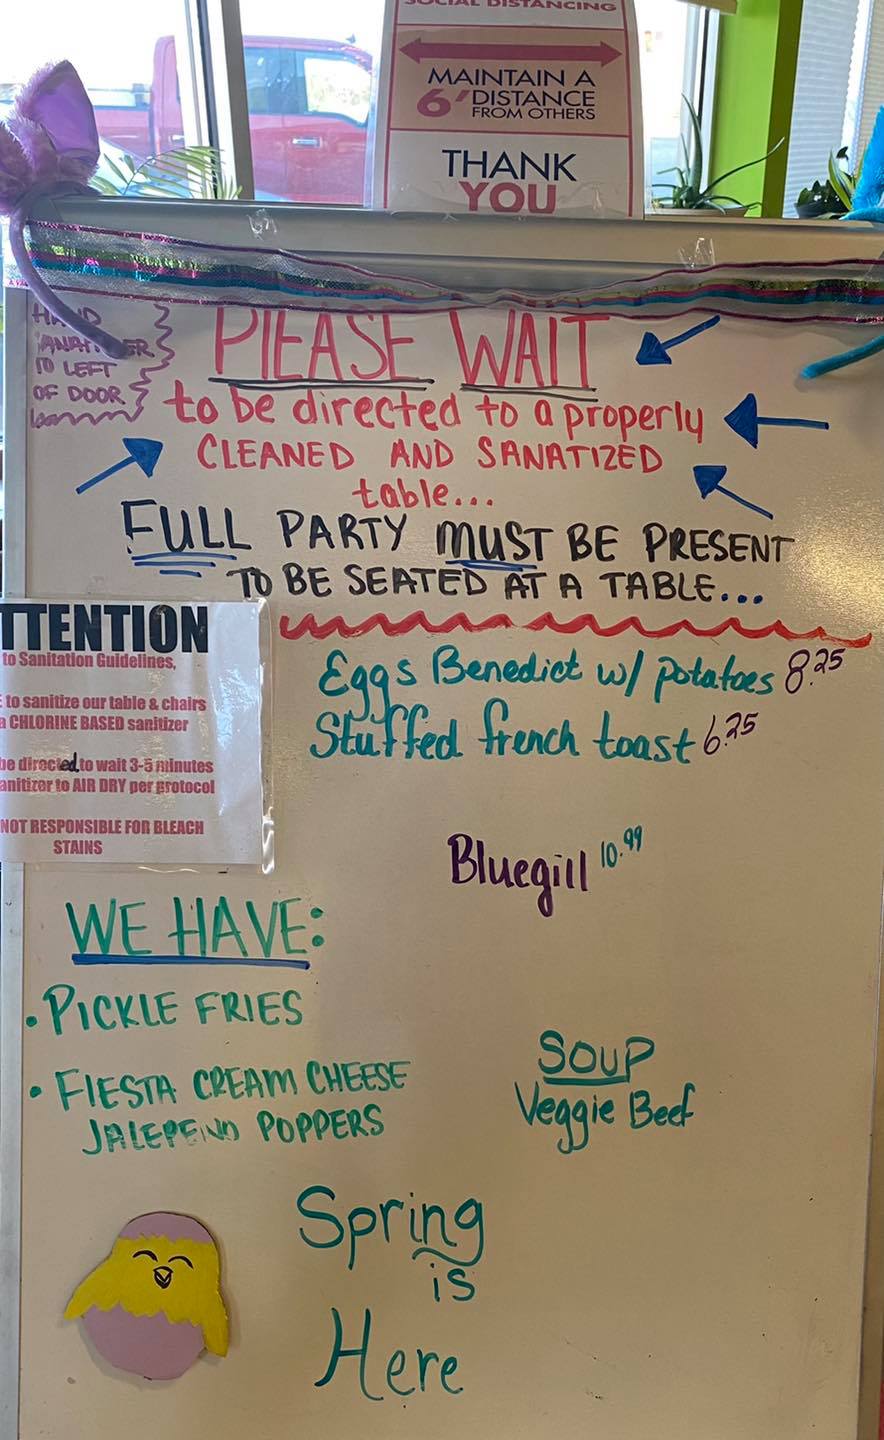 SOCIAL DISTANCING
MAINTAIN A
6' DISTANCE
FROM OTHERS
THANK
YOU
HAND
TO LEFT
OF DOOR
PLEASE WAIT
to be directed to a properly
CLEANED AND SANATIZED
table...
FULL PARTY MUST BE PRESENT
TO BE SEATED AT A TABLE...
TTENTION
to Sanitation Guidelines,
E to sanitize our table & chairs
a CHLORINE BASED sanitizer
be directed to wait 3-5 minutes
anitizer to AIR DRY per protocol
NOT RESPONSIBLE FOR BLEACH
STAINS
Eggs Benedict w/ potatoes 8.25
Stuffed french toast 6.25
Bluegill 10.99
WE HAVE:
• PICKLE FRIES
• FIESTA CREAM CHEESE
JALEPENO POPPERS
SOUP
Veggie Beef
Spring
is
Here